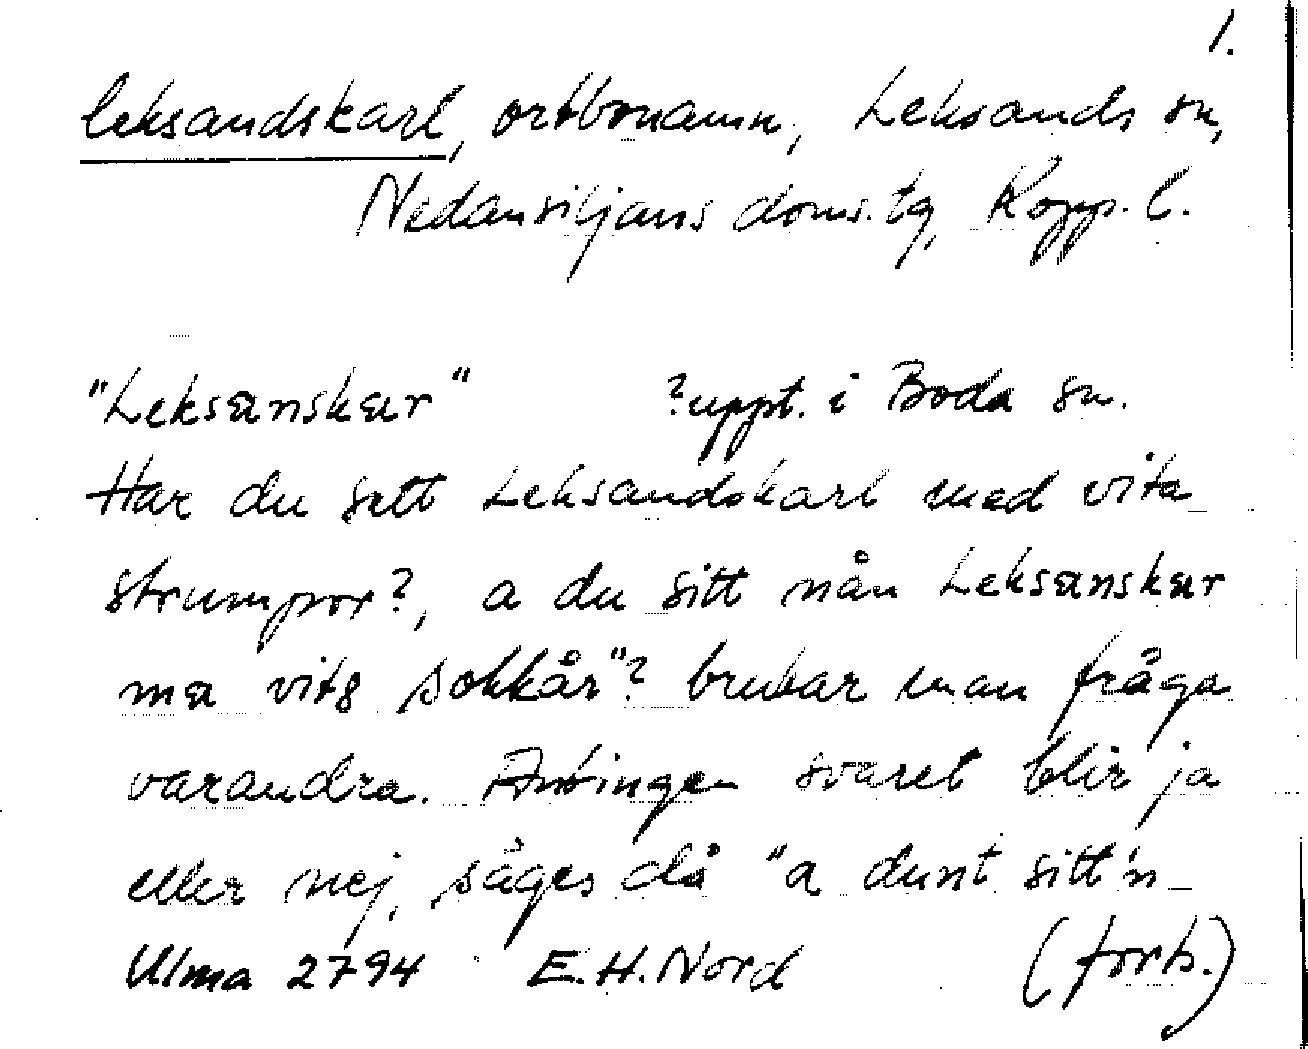 1.
leksandskarl, ortbonamn, Leksands sn,
Nedansiljans doms.tg, Kopp. l.
"Leksanskar" ?uppt. i Boda sn.
Har du sett Leksandskarl med vita
strumpor?, a du sitt nån Leksanskar
ma vita sokkår"? brukar man fråga
varandra. Antingen svaret blir ja
eller nej, säges då "a dunt sitt'n
Ulma 2794 E.H.Nord (forts.)